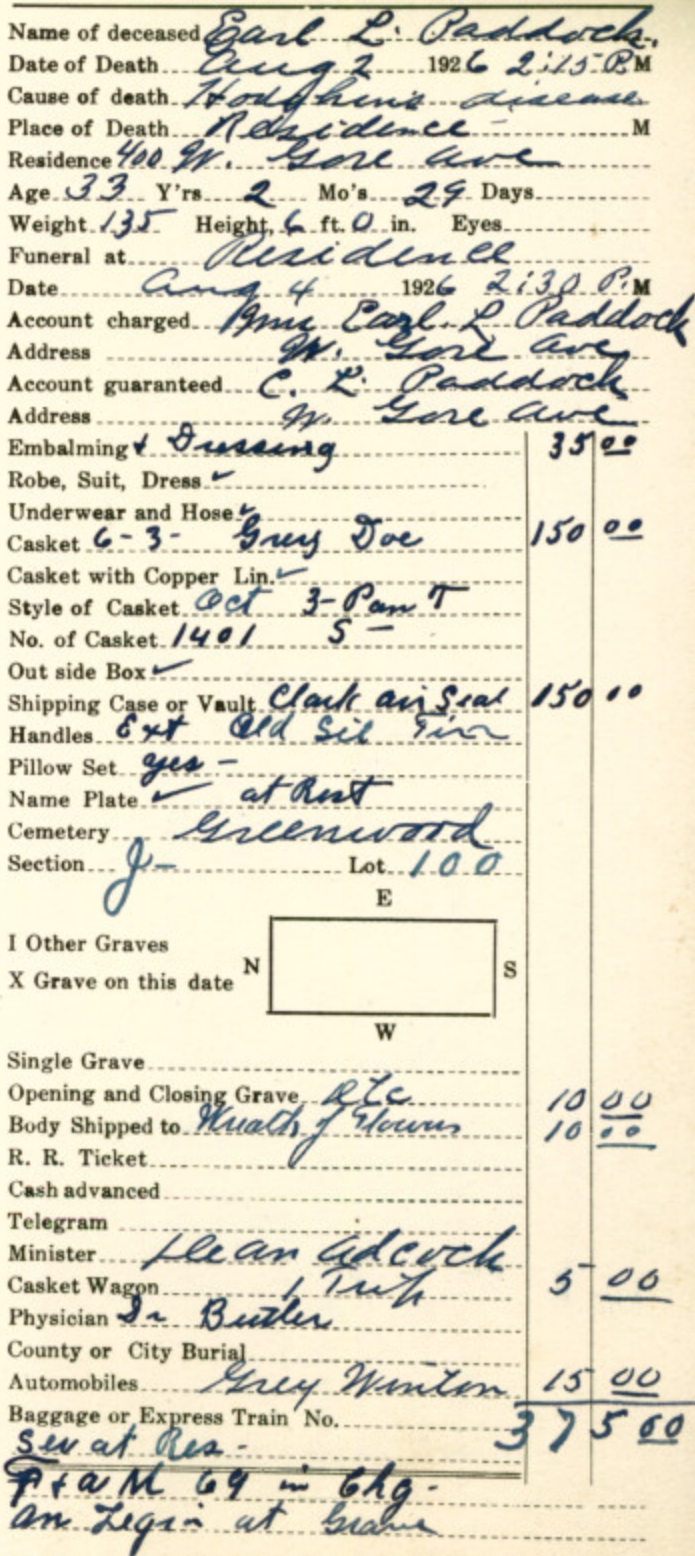 Name of deceased Earl L. Paddock.
Date of Death Aug 2 1926 2:15 P.M
Cause of death Hodghins disease
Place of Death Residence - M
Residence 400 W. Gore Ave
Age 33 Y'rs 2 Mo's 29 Days
Weight 135 Height, 6 ft. 0 in. Eyes
Funeral at Residence
Date Aug 4 1926 2:30 P.M
Account charged Earl. L Paddock
Address W. Gore Ave
Account guaranteed C. L. Paddock
Address W. Gore Ave
Embalming & Dressing 35 00
Robe, Suit, Dress ✓
Underwear and Hose ✓
Casket 6-3- Grey Doe 150 00
Casket with Copper Lin. ✓
Style of Casket Oct 3-Pan T
No. of Casket 1401 S -
Out side Box ✓
Shipping Case or Vault Clark air Seal 150 00
Handles Ext Old Sil
Pillow Set yes -
Name Plate ✓ at Rest
Cemetery Greenwood
Section J- Lot 100
E
I Other Graves
X Grave on this date N S
W
Single Grave
Opening and Closing Grave 10 00
Body Shipped to Wreath of Flowers 10 00
R. R. Ticket
Cash advanced
Telegram
Minister Dean Adcock
Casket Wagon 1 Trip 5 00
Physician Dr Butler
County or City Burial
Automobiles Grey Winton 15 00
Baggage or Express Train No. 375 00
Ser at Res -
F & A M 69 in Chg -
am Legin at Grave